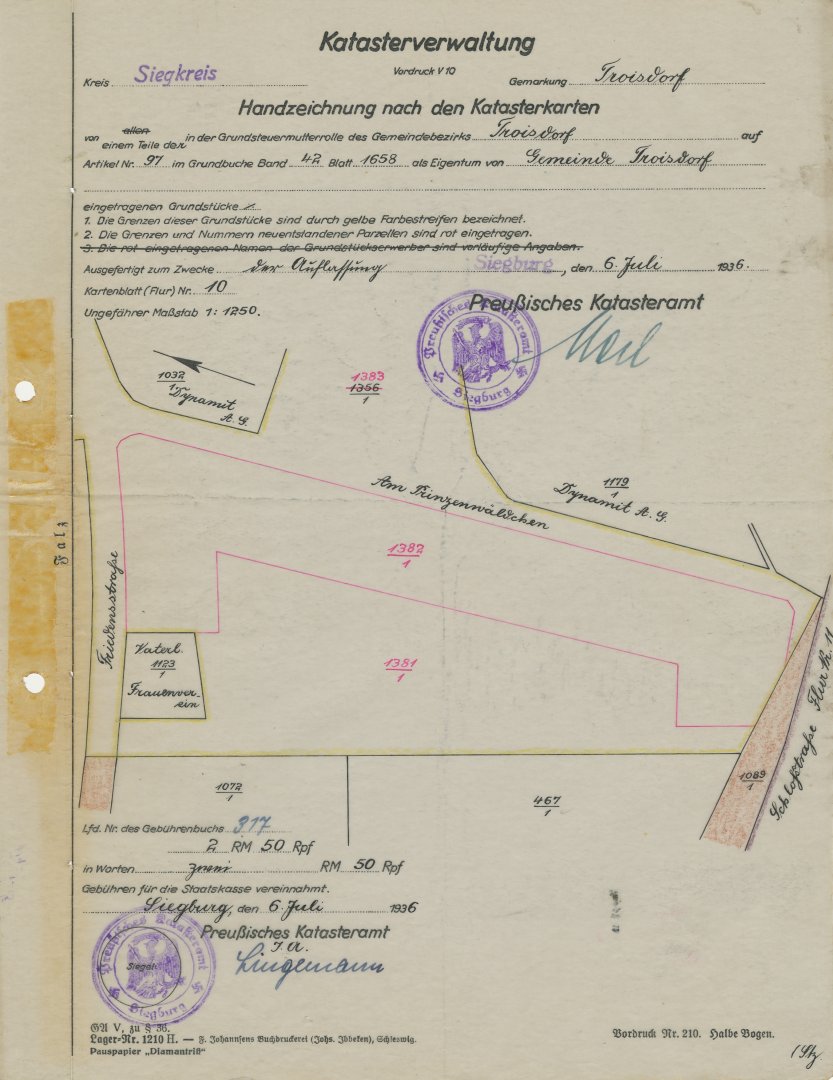 Katasterverwaltung
Vordruck V 10
Kreis Siegkreis
Gemarkung Troisdorf
Handzeichnung nach den Katasterkarten
allen
von einem Teile der in der Grundsteuermutterrolle des Gemeindebezirks Troisdorf auf
Artikel Nr. 97 im Grundbuche Band 42 Blatt 1658 als Eigentum von Gemeinde Troisdorf
eingetragenen Grundstücke
1. Die Grenzen dieser Grundstücke sind durch gelbe Farbestreifen bezeichnet.
2. Die Grenzen und Nummern neuentstandener Parzellen sind rot eingetragen.
3. Die rot eingetragenen Namen der Grundstückserwerber sind vorläufige Angaben.
Ausgefertigt zum Zwecke der Auflassung Siegburg, den 6. Juli 1936.
Kartenblatt (Flur) Nr. 10
Preußisches Katasteramt
Ungefährer Maßstab 1: 1250.
Preußisches Katasteramt
Siegburg
1032
1
Dynamit
A. G.
1383
1356
1
Am Prinzenwäldchen
1179
1
Dynamit A. G.
Falz
Friedensstraße
1382
1
Vaterl.
1123
1
Frauenver-
ein
1381
1
Schloßstraße Flur N. 11
1089
1
1072
1
467
1
Lfd. Nr. des Gebührenbuchs 317
2 RM 50 Rpf
in Worten zwei RM 50 Rpf
Gebühren für die Staatskasse vereinnahmt.
Siegburg, den 6. Juli 1936
Preußisches Katasteramt
I. A.
Lingemann
Preußisches Katasteramt
Siegel
Siegburg
GA V, zu § 36.
Lager-Nr. 1210 H. — F. Johannsens Buchdruckerei (Johs. Ibbeken), Schleswig.
Pauspapier „Diamantriß"
Vordruck Nr. 210. Halbe Bogen.